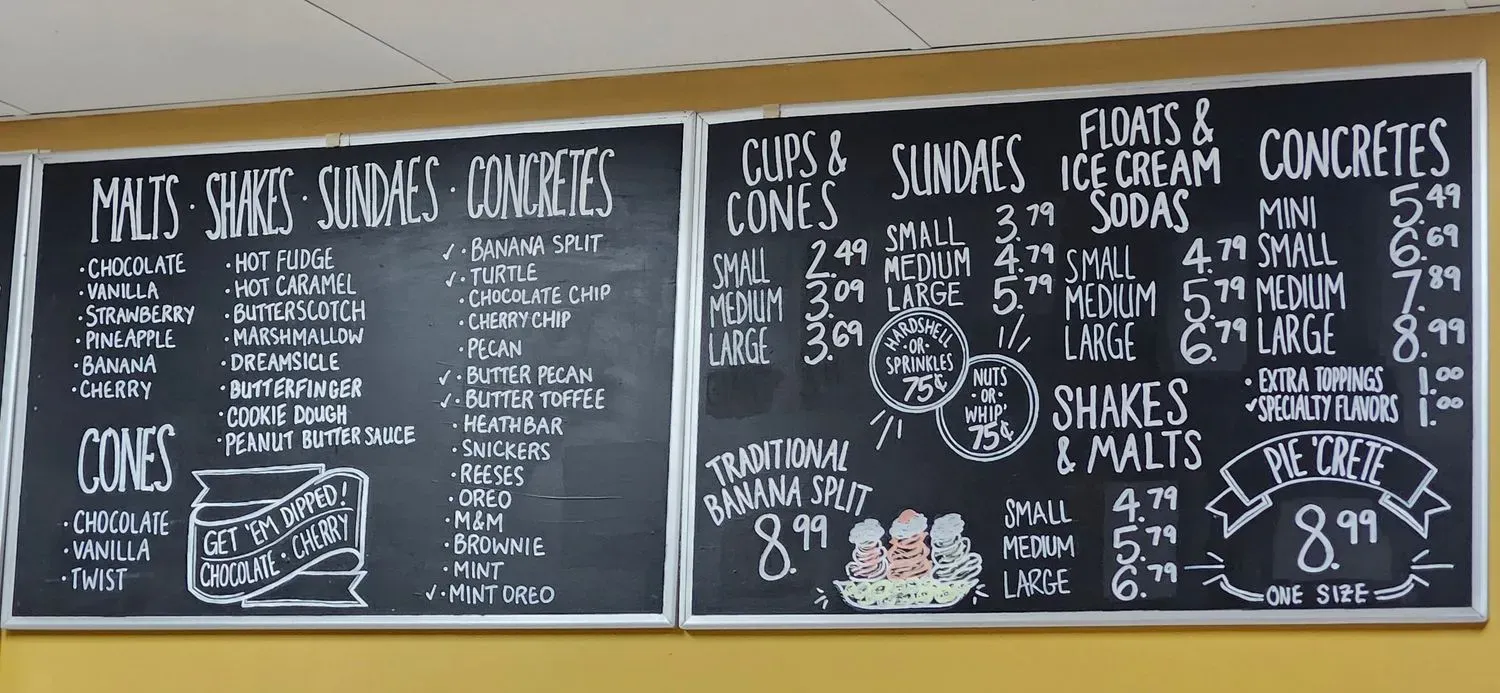 MALTS · SHAKES · SUNDAES · CONCRETES
· CHOCOLATE
· VANILLA
· STRAWBERRY
· PINEAPPLE
· BANANA
· CHERRY
· HOT FUDGE
· HOT CARAMEL
· BUTTERSCOTCH
· MARSHMALLOW
· DREAMSICLE
· BUTTERFINGER
· COOKIE DOUGH
· PEANUT BUTTER SAUCE
✓ · BANANA SPLIT
✓ · TURTLE
· CHOCOLATE CHIP
· CHERRY CHIP
· PECAN
✓ · BUTTER PECAN
✓ · BUTTER TOFFEE
· HEATHBAR
· SNICKERS
· REESES
· OREO
· M&M
· BROWNIE
· MINT
✓ · MINT OREO
CONES
· CHOCOLATE
· VANILLA
· TWIST
GET 'EM DIPPED!
CHOCOLATE · CHERRY
CUPS &
CONES
SMALL 2.49
MEDIUM 3.09
LARGE 3.69
TRADITIONAL
BANANA SPLIT
8.99
SUNDAES
SMALL 3.79
MEDIUM 4.79
LARGE 5.79
HARDSHELL
· OR ·
SPRINKLES
75¢
NUTS
· OR ·
WHIP'
75¢
FLOATS &
ICE CREAM
SODAS
SMALL 4.79
MEDIUM 5.79
LARGE 6.79
SHAKES
& MALTS
SMALL 4.79
MEDIUM 5.79
LARGE 6.79
CONCRETES
MINI 5.49
SMALL 6.69
MEDIUM 7.89
LARGE 8.99
· EXTRA TOPPINGS 1.00
✓ SPECIALTY FLAVORS 1.00
PIE 'CRETE
8.99
ONE SIZE